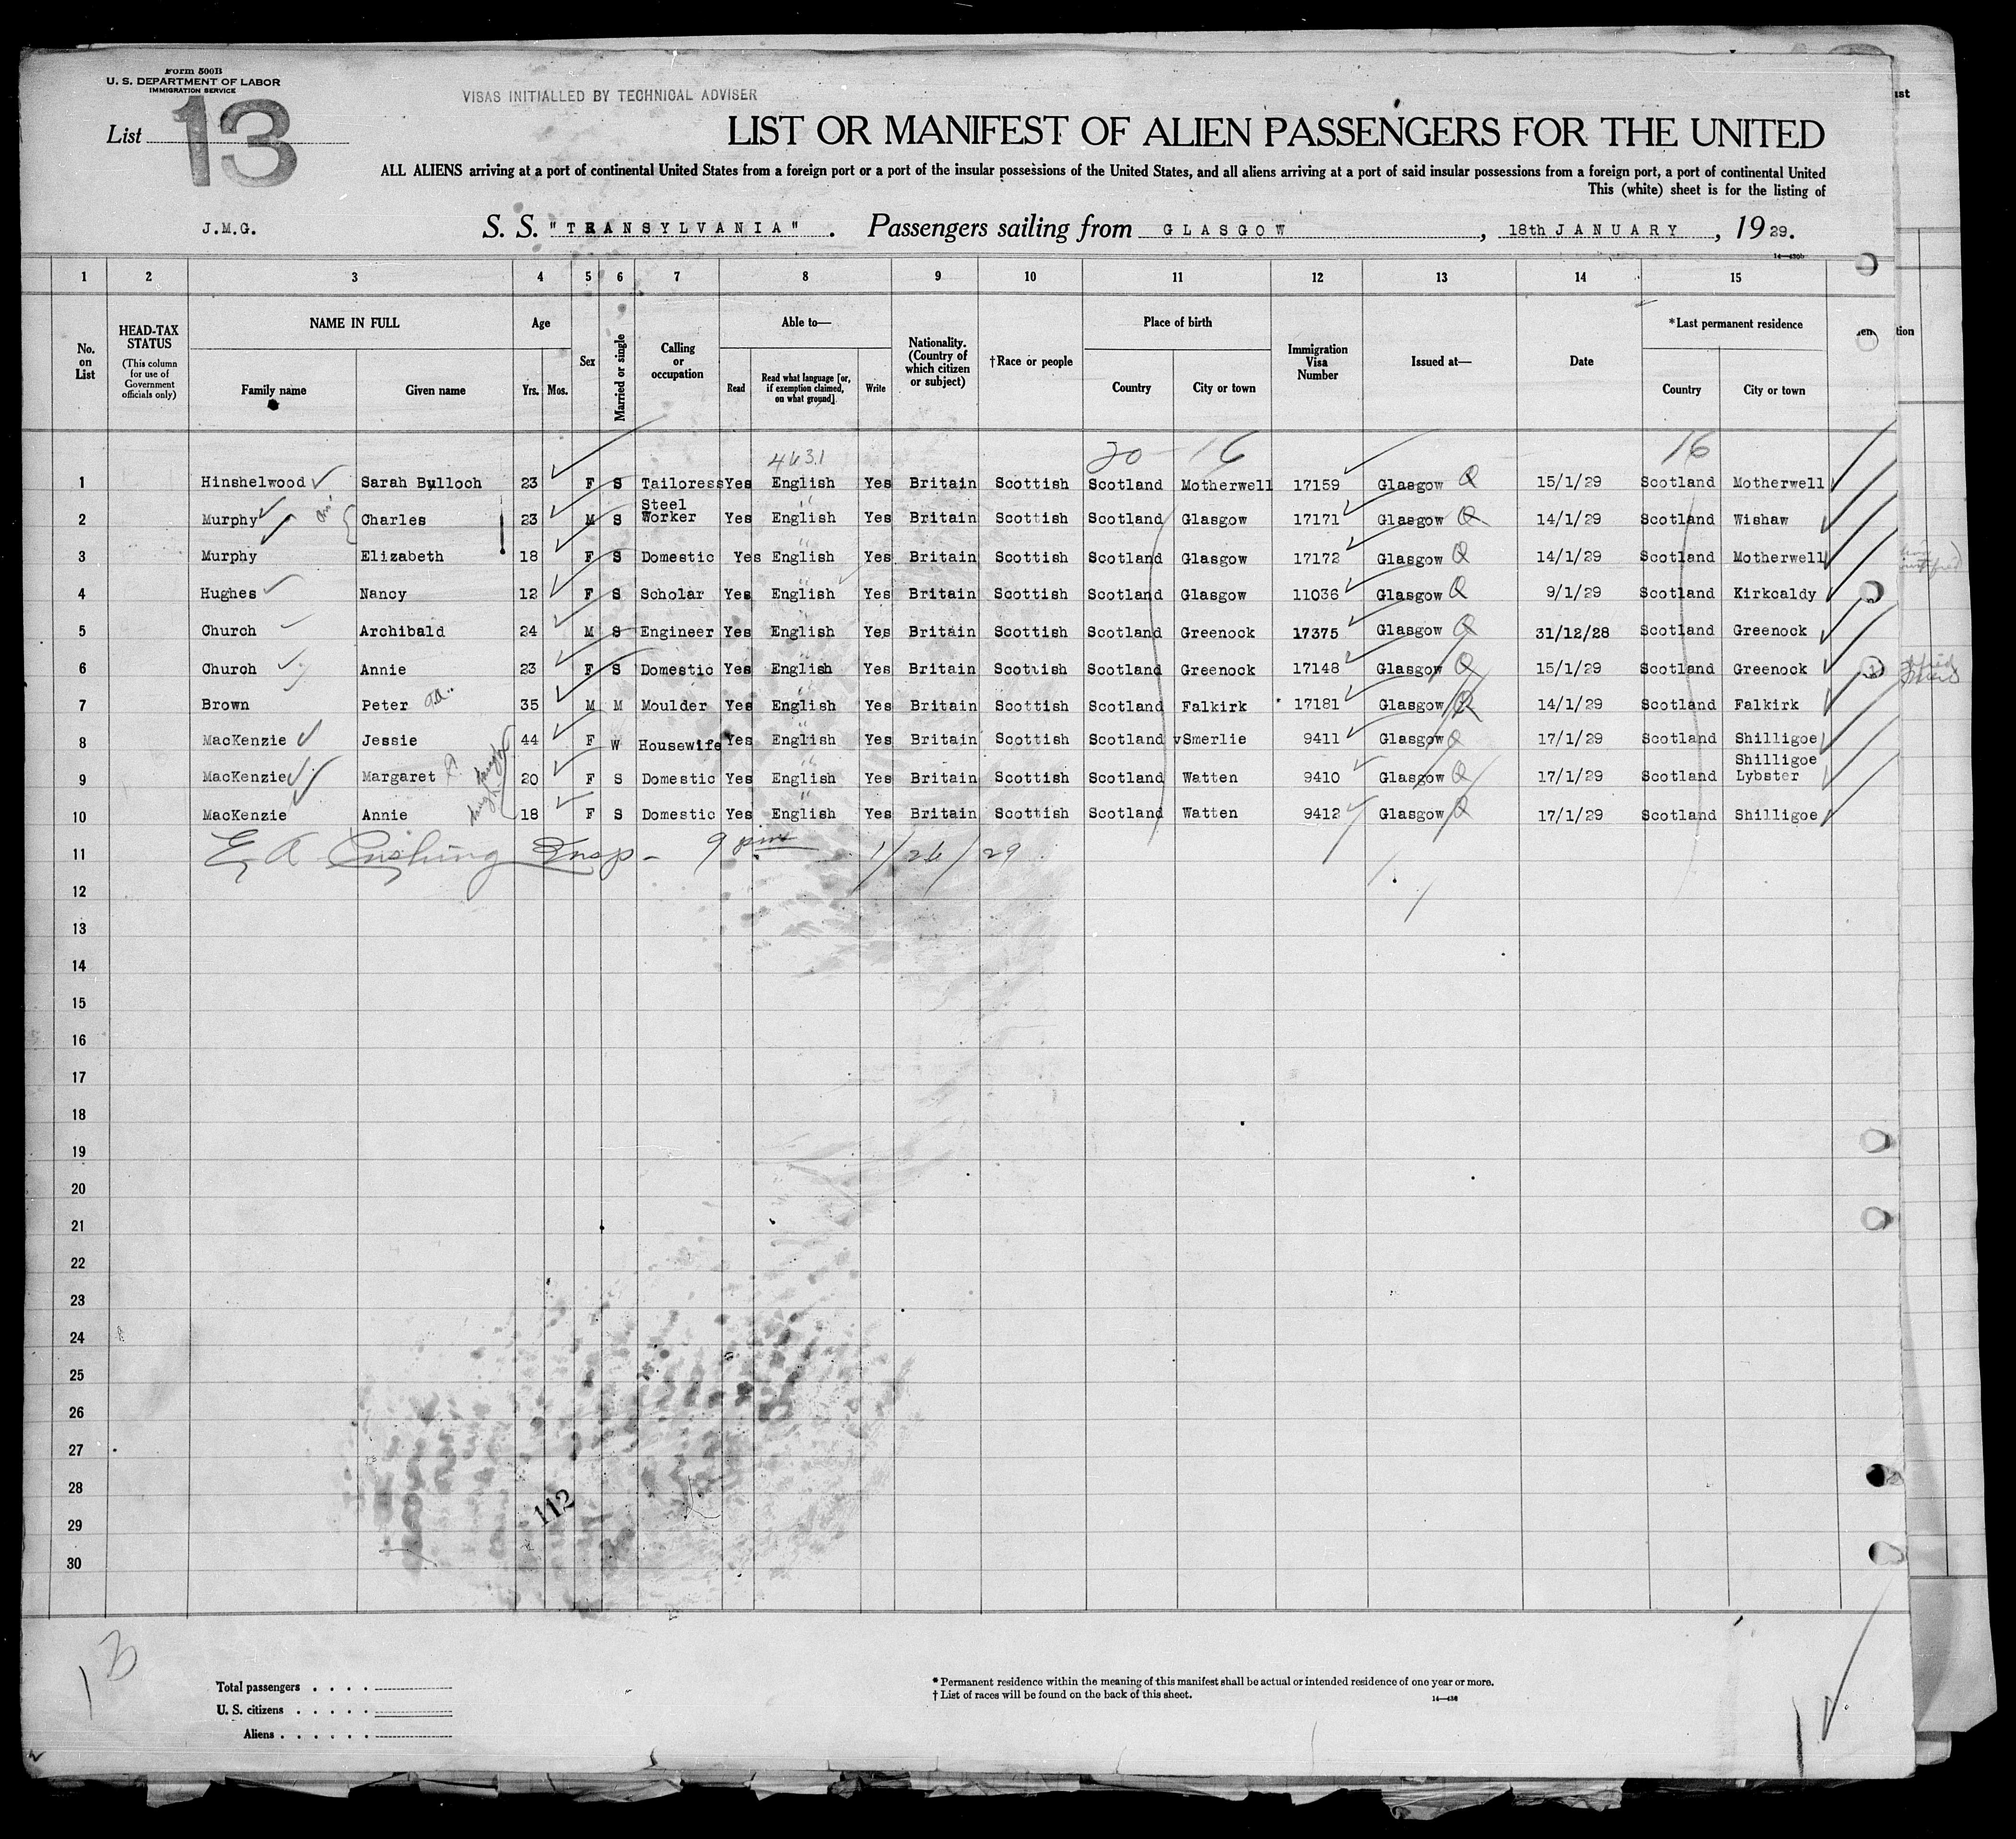 Form 500B
U. S. DEPARTMENT OF LABOR
IMMIGRATION SERVICE
VISAS INITIALLED BY TECHNICAL ADVISER
List 13
LIST OR MANIFEST OF ALIEN PASSENGERS FOR THE UNITED
ALL ALIENS arriving at a port of continental United States from a foreign port or a port of the insular possessions of the United States, and all aliens arriving at a port of said insular possessions from a foreign port, a port of continental United
This (white) sheet is for the listing of
J.M.G. S. S. "TRANSYLVANIA". Passengers sailing from GLASGOW, 18th JANUARY, 1929.
14—430b
1 2 3 4 5 6 7 8 9 10 11 12 13 14 15
No. on List
HEAD-TAX STATUS (This column for use of Government officials only)
NAME IN FULL Family name Given name
Age Yrs. Mos.
Sex
Married or single
Calling or occupation
Able to— Read Read what language [or, if exemption claimed, on what ground]. Write
Nationality. (Country of which citizen or subject)
†Race or people
Place of birth Country City or town
Immigration Visa Number
Issued at—
Date
*Last permanent residence Country City or town
4631 20 16 16
1 Hinshelwood Sarah Bulloch 23 F S Tailoress Yes English Yes Britain Scottish Scotland Motherwell 17159 Glasgow 15/1/29 Scotland Motherwell
2 Murphy Charles 23 M S Steel Worker Yes English Yes Britain Scottish Scotland Glasgow 17171 Glasgow 14/1/29 Scotland Wishaw
3 Murphy Elizabeth 18 F S Domestic Yes English Yes Britain Scottish Scotland Glasgow 17172 Glasgow 14/1/29 Scotland Motherwell
4 Hughes Nancy 12 F S Scholar Yes English Yes Britain Scottish Scotland Glasgow 11036 Glasgow 9/1/29 Scotland Kirkcaldy
5 Church Archibald 24 M S Engineer Yes English Yes Britain Scottish Scotland Greenock 17375 Glasgow 31/12/28 Scotland Greenock
6 Church Annie 23 F S Domestic Yes English Yes Britain Scottish Scotland Greenock 17148 Glasgow 15/1/29 Scotland Greenock
7 Brown Peter 35 M M Moulder Yes English Yes Britain Scottish Scotland Falkirk 17181 Glasgow 14/1/29 Scotland Falkirk
8 MacKenzie Jessie 44 F W Housewife Yes English Yes Britain Scottish Scotland Smerlie 9411 Glasgow 17/1/29 Scotland Shilligoe
9 MacKenzie Margaret 20 F S Domestic Yes English Yes Britain Scottish Scotland Watten 9410 Glasgow 17/1/29 Scotland Shilligoe Lybster
10 MacKenzie Annie 18 F S Domestic Yes English Yes Britain Scottish Scotland Watten 9412 Glasgow 17/1/29 Scotland Shilligoe
11 E A Cushing Insp - 9 pm 1/26/29
12
13
14
15
16
17
18
19
20
21
22
23
24
25
26
27
28
112
29
30
Total passengers
U. S. citizens
Aliens
* Permanent residence within the meaning of this manifest shall be actual or intended residence of one year or more.
† List of races will be found on the back of this sheet.
14—430